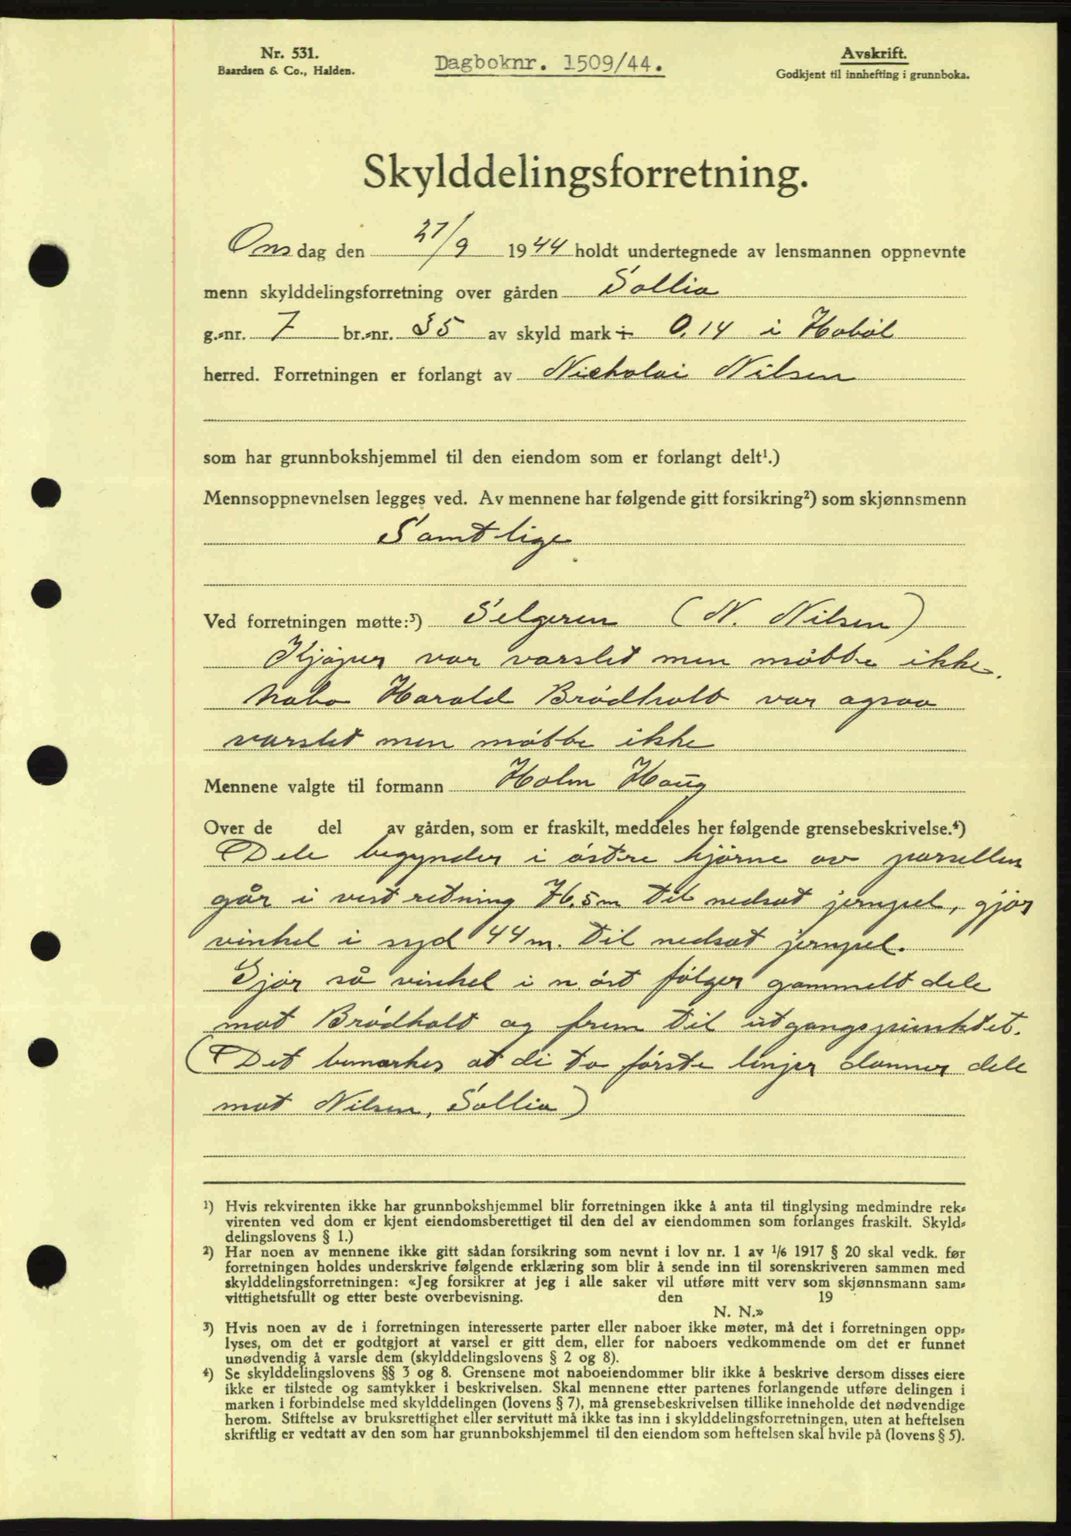 Nr. 531.
Baardsen & Co., Halden.
Dagboknr. 1509/44.
Avskrift.
Godkjent til innhefting i grunnboka.
Skylddelingsforretning.
Onsdag den 27/9 1944 holdt undertegnede av lensmannen oppnevnte
menn skylddelingsforretning over gården Sollia
g.-nr. 7 br.-nr. 35 av skyld mark 0,14 i Hobøl
herred. Forretningen er forlangt av Nicholai Nilsen
som har grunnbokshjemmel til den eiendom som er forlangt delt¹.)
Mennsoppnevnelsen legges ved. Av mennene har følgende gitt forsikring²) som skjønnsmenn
Samtlige
Ved forretningen møtte:³) Selgeren (N. Nilsen)
Kjøper var varslet men møtte ikke.
Nabo Harald Brødholt var ogsaa
varslet men møtte ikke
Mennene valgte til formann Holm Haug
Over de del av gården, som er fraskilt, meddeles her følgende grensebeskrivelse.⁴)
Dele begynder i østre hjørne av parsellen
går i vest retning 76,5 m til nedsat jernpel, gjør
vinkel i syd 44 m. til nedsat jernpel.
Gjør så vinkel i n. øst følger gammelt dele
mot Brødholt og frem til utgangspunktet.
(Det bemerkes at di to første linjer danner dele
mot Nilsen, Sollia)
¹) Hvis rekvirenten ikke har grunnbokshjemmel blir forretningen ikke å anta til tinglysing medmindre rek-
virenten ved dom er kjent eiendomsberettiget til den del av eiendommen som forlanges fraskilt. Skyld-
delingslovens § 1.)
²) Har noen av mennene ikke gitt sådan forsikring som nevnt i lov nr. 1 av 1/6 1917 § 20 skal vedk. før
forretningen holdes underskrive følgende erklæring som blir å sende inn til sorenskriveren sammen med
skylddelingsforretningen: «Jeg forsikrer at jeg i alle saker vil utføre mitt verv som skjønnsmann sam-
vittighetsfullt og etter beste overbevisning. den 19
N. N.»
³) Hvis noen av de i forretningen interesserte parter eller naboer ikke møter, må det i forretningen opp-
lyses, om det er godtgjort at varsel er gitt dem, eller for naboers vedkommende om det er funnet
unødvendig å varsle dem (skylddelingslovens § 2 og 8).
⁴) Se skylddelingslovens §§ 3 og 8. Grensene mot naboeiendommer blir ikke å beskrive dersom disses eiere
ikke er tilstede og samtykker i beskrivelsen. Skal mennene etter partenes forlangende utføre delingen i
marken i forbindelse med skylddelingen (lovens § 7), må grensebeskrivelsen tillike inneholde det nødvendige
herom. Stiftelse av bruksrettighet eller servitutt må ikke tas inn i skylddelingsforretningen, uten at heftelsen
skriftlig er vedtatt av den som har grunnbokshjemmel til den eiendom som heftelsen skal hvile på (lovens § 5).